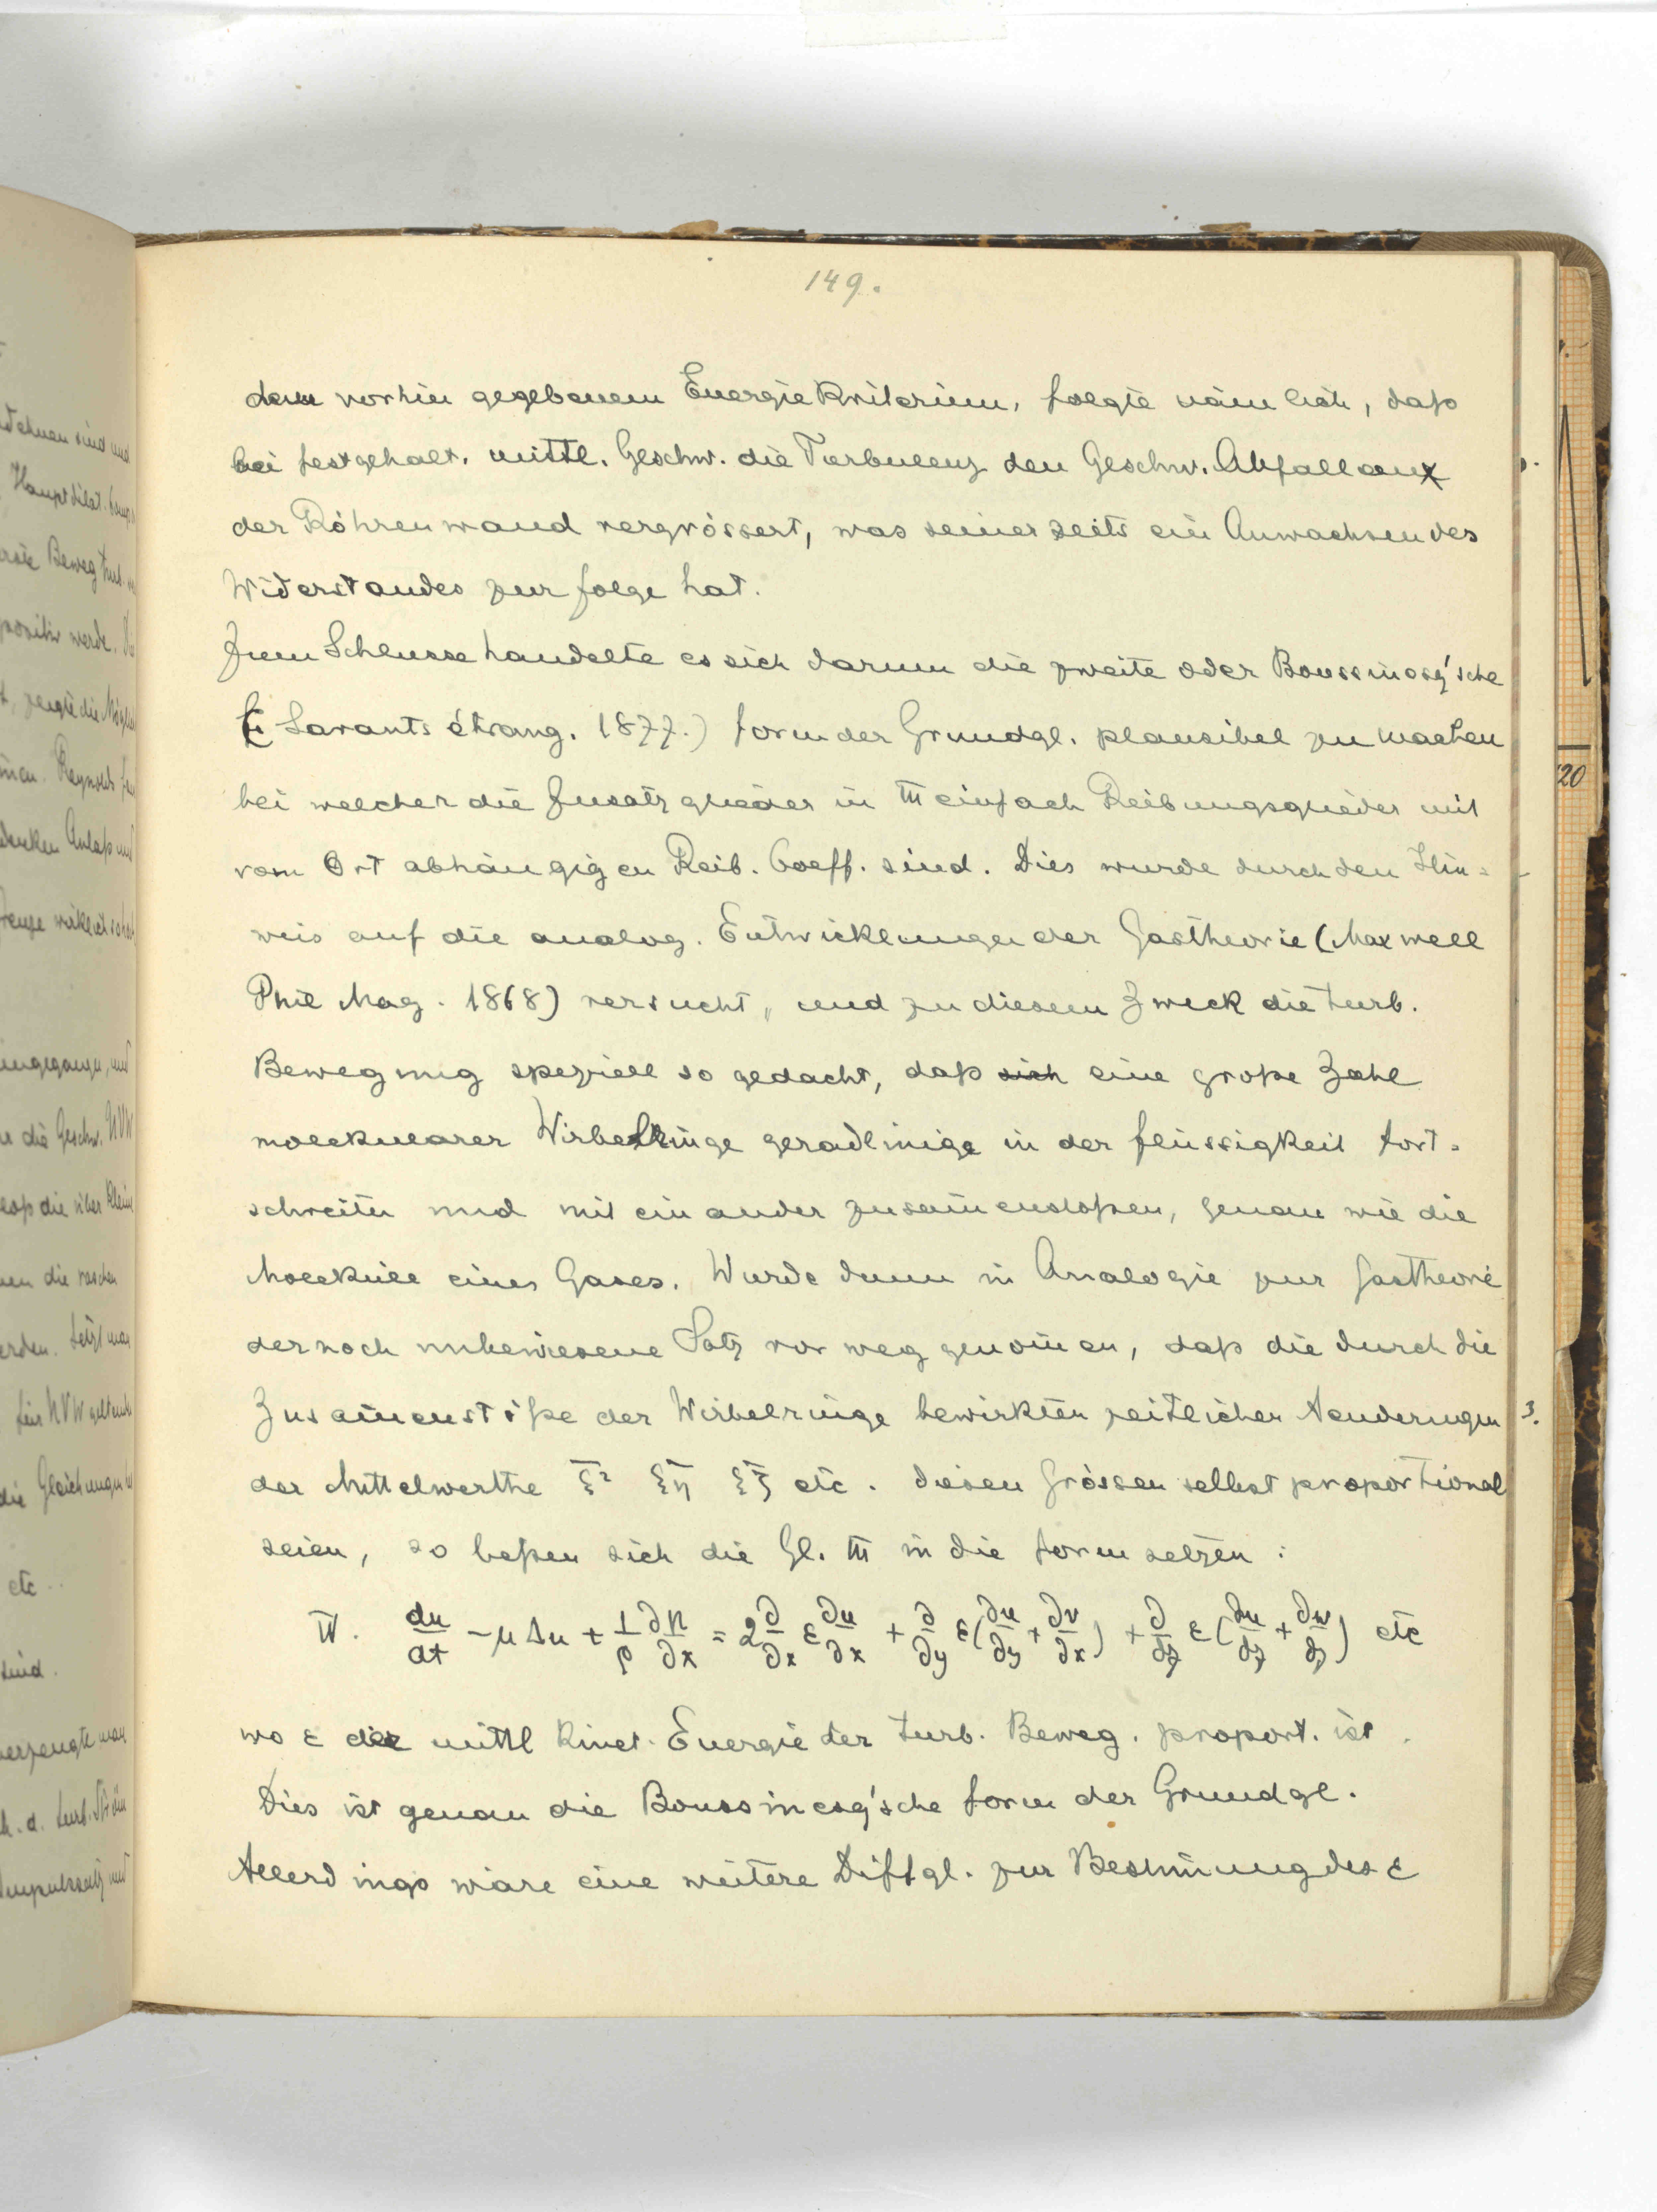 149.
dem vorhin gegebenem Energiekriterium, folgte nämlich, daß
bei festgehalt. mittl. Geschw. die Turbulenz den Geschw. Abfall an
der Röhrenwand vergrössert, was seinerseits ein Anwachsen des
Widerstandes zur folge hat.
Zum Schlusse handelte es sich darum die zweite oder Boussinesq'sche
( Savants étrang. 1877.) form der Grundgl. plausibel zu machen
bei welcher die Zusatzglieder in III einfach Reibungsglieder mit
vom Ort abhängigen Reib. Coeff. sind. Dies wurde durch den Hin=
weis auf die analog. Entwicklungen der Gastheorie (Maxwell
Phil Mag. 1868) versucht, und zu diesem Zweck die turb.
Bewegung speziell so gedacht, daß sich eine große Zahl
molekularer Wirbelringe geradlinige in der flüssigkeit fort=
schreiten und mit einander zusam̄enstoßen, genau wie die
Moleküle eines Gases. Wurde dann in Analogie zur Gastheorie
der noch unbewiesene Satz vorweg genom̄en, daß die durch die
Zusam̄enstöße der Wirbelringe bewirkten zeitlichen Aenderungen
der Mittelwerthe ξ̅² ξ̅η̅ ξ̅ζ̅ etc. diesen Grössen selbst proportional
seien, so ließen sich die Gl. III in die form setzen:
IV. du/dt - μ Δu + 1/ρ ∂p/∂x = 2 ∂/∂x ε ∂u/∂x + ∂/∂y ε(∂u/∂y + ∂v/∂x) + ∂/∂z ε(∂u/∂z + ∂w/∂x) etc
wo ε der mittl kinet. Energie der turb. Beweg. proport. ist.
Dies ist genau die Boussinesq'sche form der Grundgl.
Allerdings wäre eine weitere Diffgl. zur Bestim̄ung des ε
20
3.